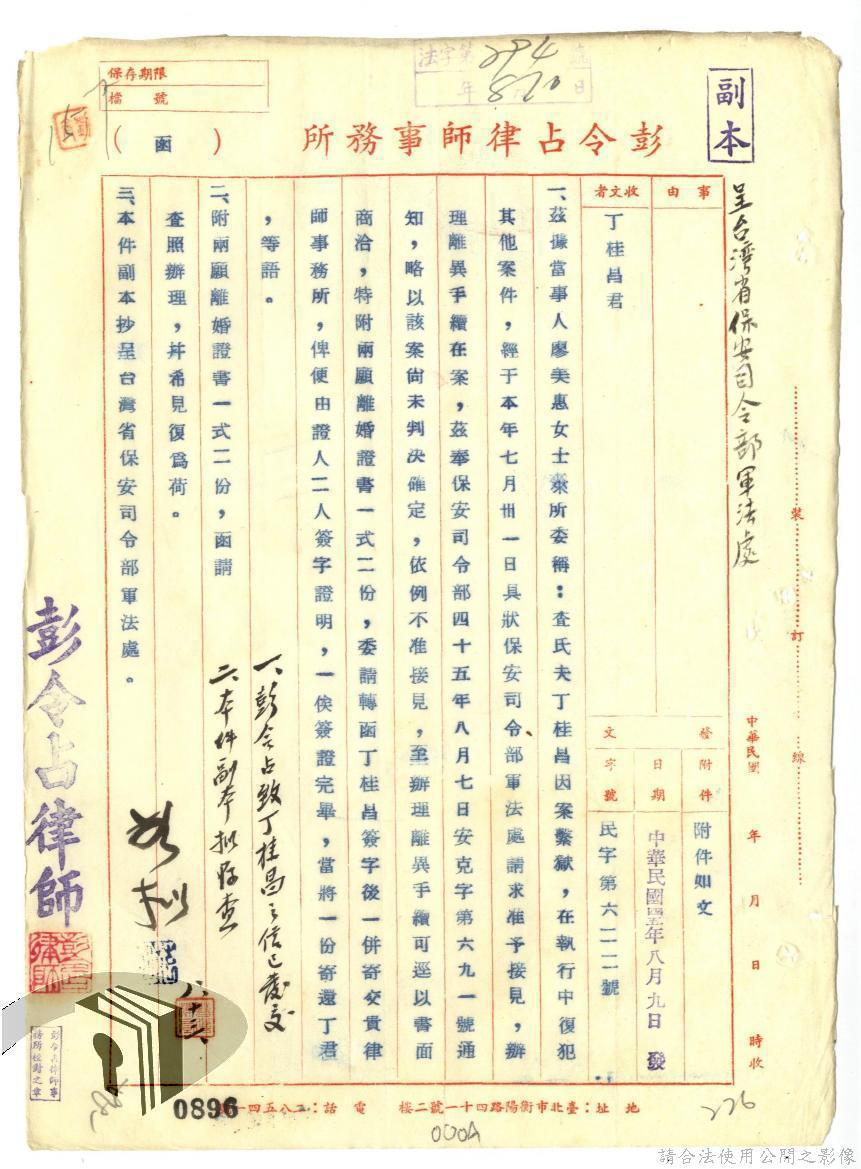 副本
保存期限
檔號
法字第294號
年8月10日
彭令占律師事務所
（函）
呈台湾省保安司令部軍法處
事由
收文者
丁桂昌君
發文
附件
附件如文
日期
中華民國四五年八月九日發
字號
民字第六二二號
裝訂線
中華民國年月日時收
一、茲據當事人廖美惠女士來所委稱：查氏夫丁桂昌因案繫獄，在執行中復犯
其他案件，經于本年七月卅一日具狀保安司令部軍法處請求准予接見，辦
理離異手續在案，茲奉保安司令部四十五年八月七日安克字第六九一號通
知，略以該案尚未判決確定，依例不准接見，至辦理離異手續可逕以書面
商洽，特附兩願離婚證書一式二份，委請轉函丁桂昌簽字後一併寄交貴律
師事務所，俾便由證人二人簽字證明，一俟簽證完畢，當將一份寄還丁君
，等語。
二、附兩願離婚證書一式二份，函請
查照辦理，并希見復為荷。
三、本件副本抄呈台灣省保安司令部軍法處。
一、彭令占致丁桂昌之信已發交
二、本件副本拟存查
彭令占律師
彭令占律師事
務所校對之章
0896
地址：臺北市衡陽路四十一號二樓 電話：二八五四一
000A
226
請合法使用公開之影像